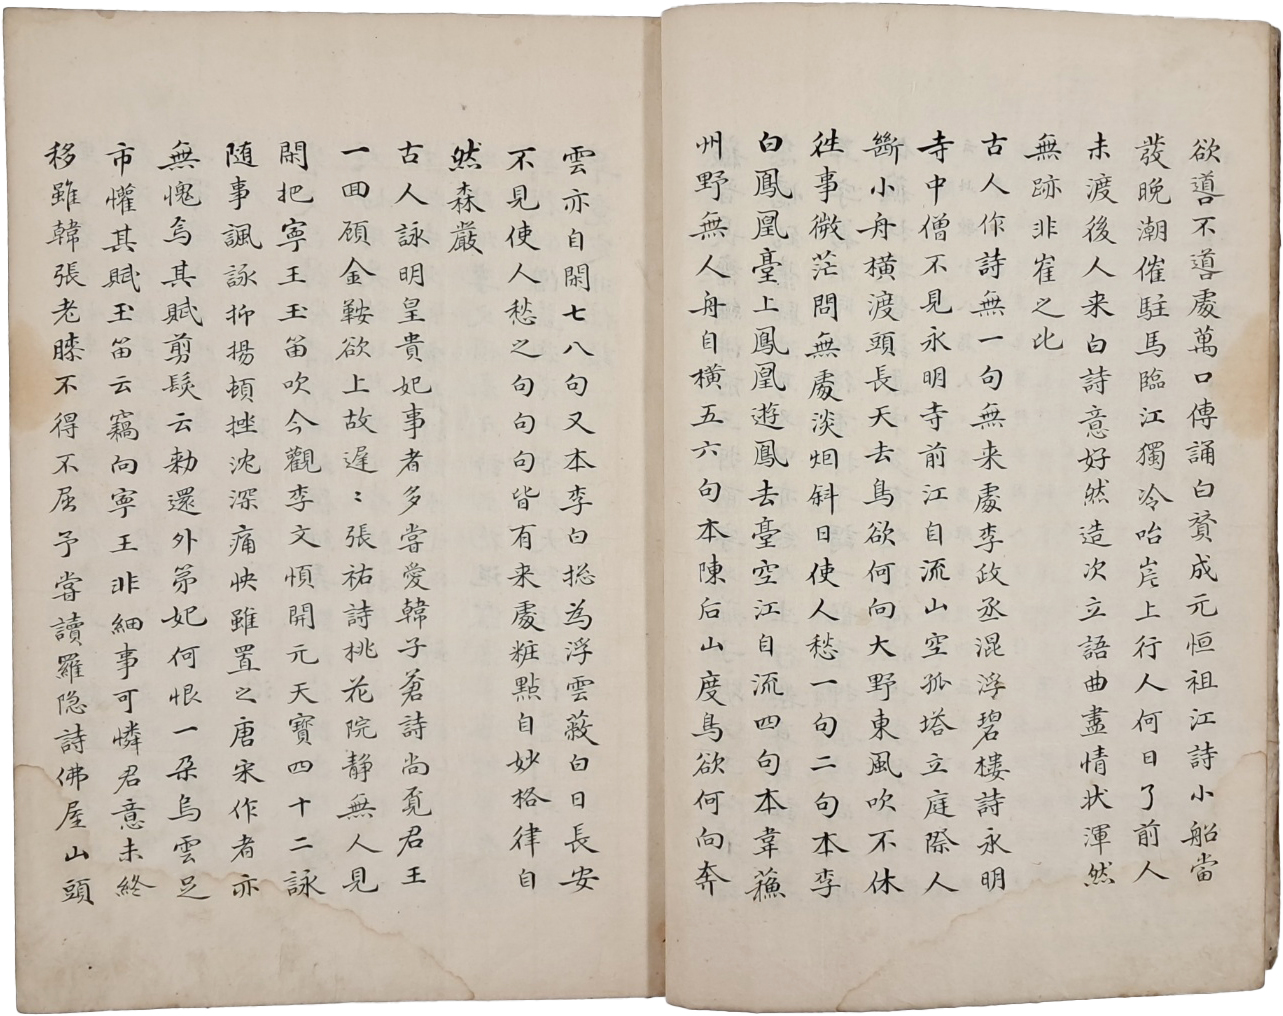 欲噵不噵處萬口傳誦白贇成元恒祖江詩小船當
發晚潮催駐馬臨江獨冷咍岸上行人何日了前人
未渡後人来白詩意好然造次立語曲盡情狀渾然
無跡非崔之比
古人作詩無一句無来處李政丞混浮碧樓詩永明
寺中僧不見永明寺前江自流山空孤塔立庭際人
斷小舟橫渡頭長天去鳥欲何向大野東風吹不休
徃事微茫問無處淡烟斜日使人愁一句二句本李
白鳳凰臺上鳳凰遊鳳去臺空江自流四句本韋蘓
州野無人舟自橫五六句本陳后山度鳥欲何向奔
雲亦自閑七八句又本李白摠為浮雲蔽白日長安
不見使人愁之句句句皆有来處粧點自妙格律自
然森嚴
古人詠明皇貴妃事者多甞愛韓子蒼詩尚覓君王
一回顧金鞍欲上故遲〻張祐詩桃花院靜無人見
閑把寧王玉笛吹今觀李文順開元天寶四十二詠
随事諷詠抑揚頓挫沈深痛快雖置之唐宋作者亦
無愧焉其賦剪髮云勑還外第妃何恨一朶烏雲足
市懽其賦玉笛云竊向寧王非細事可憐君意未終
移雖韓張老膝不得不屈予甞讀羅隐詩佛屋山頭